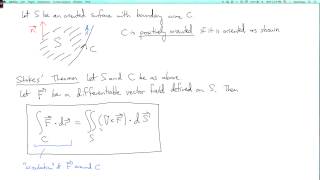 Let S be an oriented surface with boundary curve C
n⃗
S
C
C is positively oriented if it is oriented as shown
Stokes' Theorem Let S and C be as above
Let F⃗ be a differentiable vector field defined on S. Then
∫_C F⃗ · dr⃗ = ∬_S (∇×F⃗) · dS⃗
"circulation" of F⃗ around C